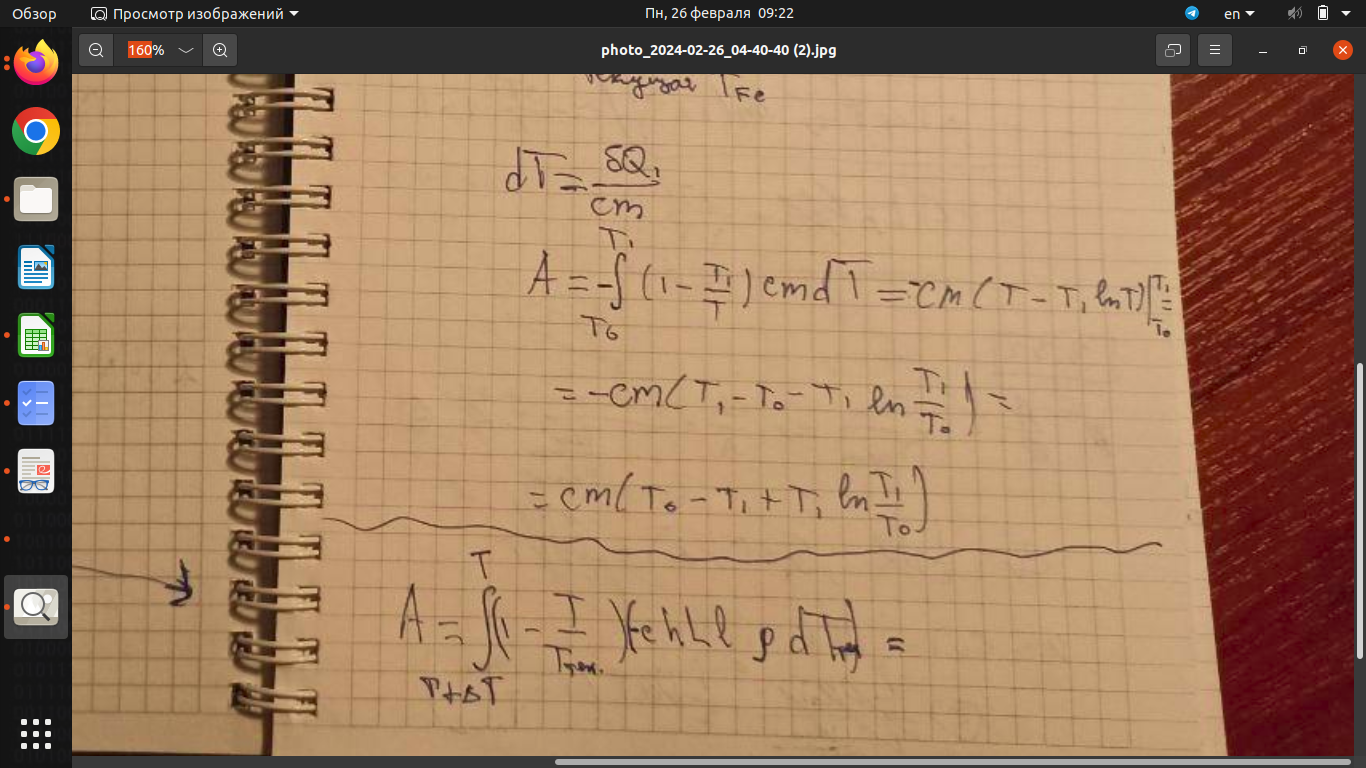 Обзор Просмотр изображений Пн, 26 февраля 09:22 en
160% photo_2024-02-26_04-40-40 (2).jpg
текущая T_Fe
dT = δQ₁/cm
A = -∫_{T₀}^{T₁} (1 - T₁/T) cm dT = -cm (T - T₁ ln T)|_{T₀}^{T₁} =
= -cm (T₁ - T₀ - T₁ ln T₁/T₀) =
= cm (T₀ - T₁ + T₁ ln T₁/T₀)
A = ∫_{T+ΔT}^{T} (1 - T/T_тек.) (-c h L l ρ dT_тек) =